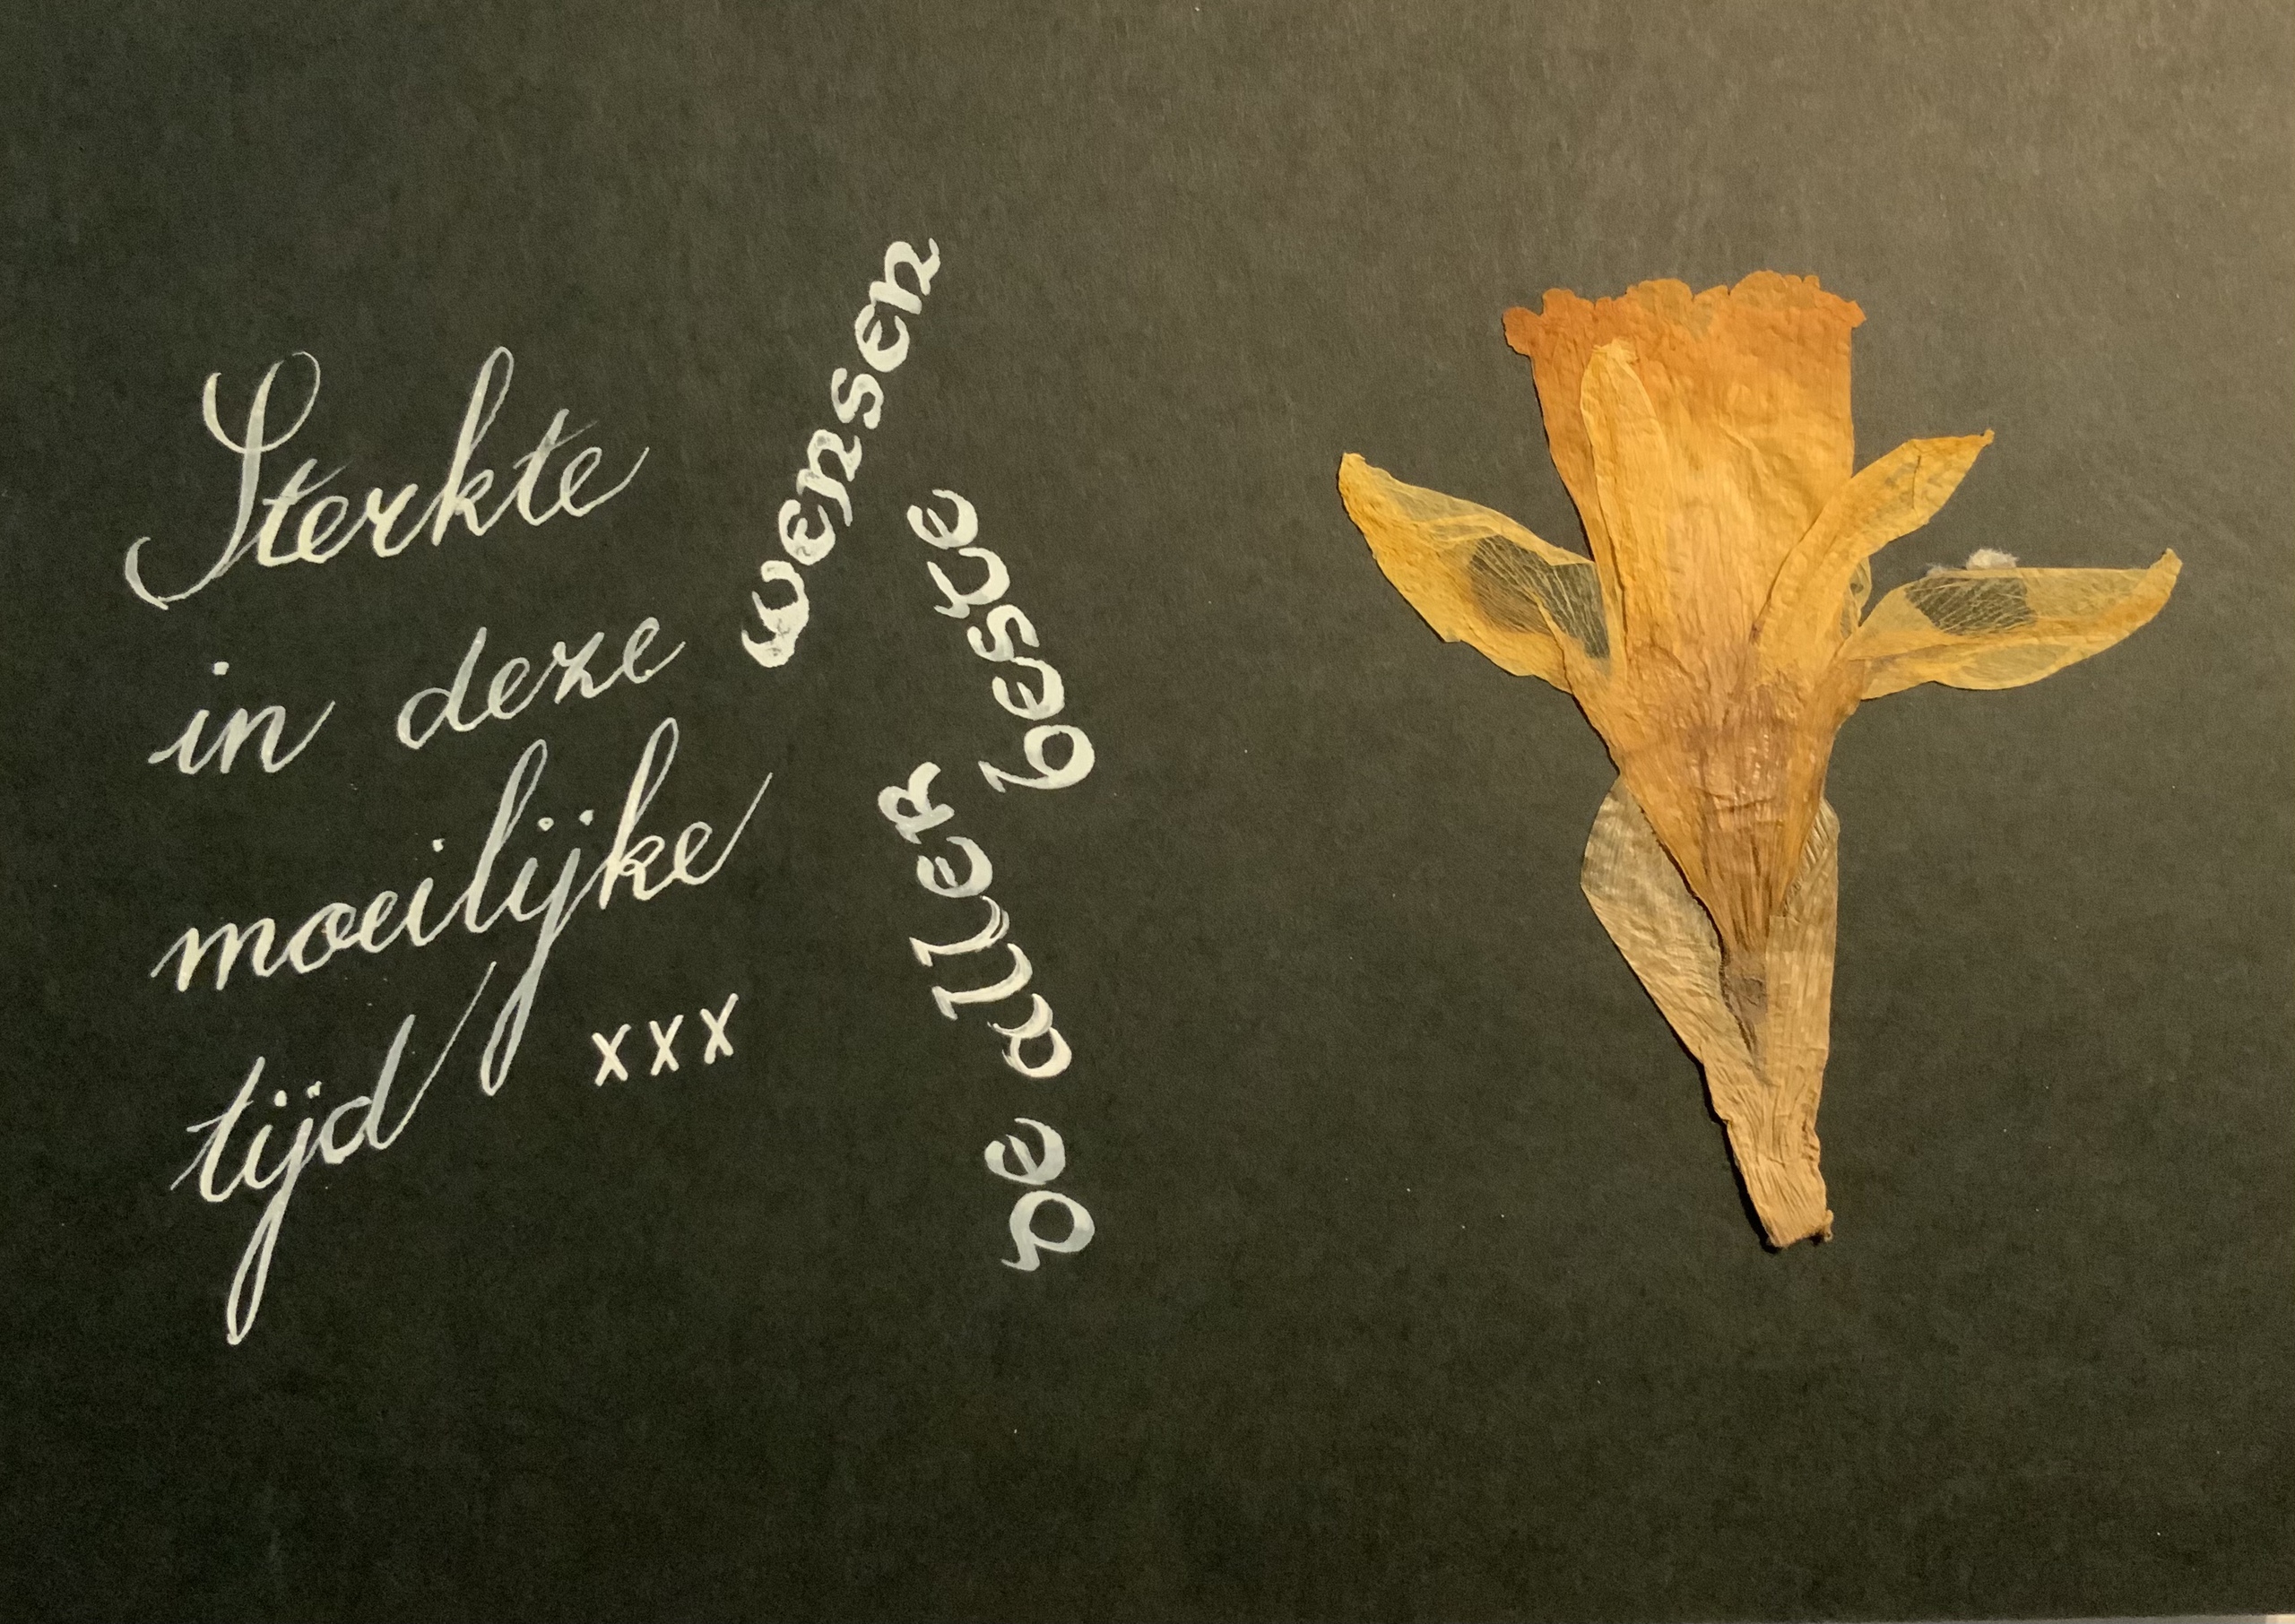 Sterkte
in deze
moeilijke
tijd xxx
De aller
beste
wensen